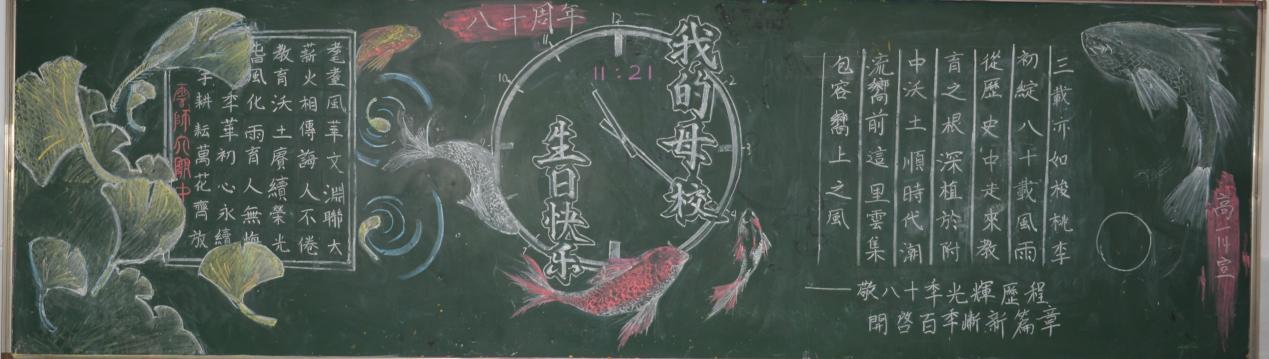 八十周年
我的母校
生日快乐
11:21
12
11
10
2
3
4
7
耄耋風華文淵聯大
薪火相傳誨人不倦
教育沃土賡續榮光
風化雨育人無悔
李華初心永續
耕耘萬花齊放
雲師大附中
三載亦如梭桃李
初綻八十載風雨
從歷史中走來教
育之根深植於附
中沃土順時代潮
流嚮前這里雲集
包容嚮上之風
——敬八十季光輝歷程
開啓百季嶄新篇章
高一14宣